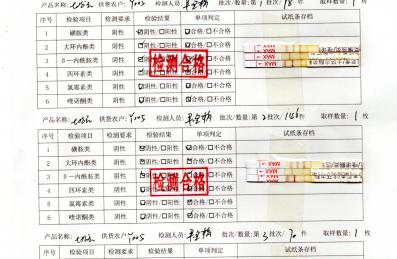 产品名称: 供货农户: Y005 检测人员: 批次/数量: 第 1 批次/ 18 件 取样数量: 1 枚
序号 检验项目 检测要求 检验结果 单项判定 试纸条存档
1 磺胺类 阴性 ☑阴性/□阳性 ☑合格/□不合格
2 大环内酯类 阴性 ☑阴性/□阳性 ☑合格/□不合格
3 β一内酰胺类 阴性 ☑阴性/□阳性 ☑合格/□不合格
4 四环素类 阴性 ☑阴性/□阳性 ☑合格/□不合格
5 氯霉素类 阴性 ☑阴性/□阳性 ☑合格/□不合格
6 喹诺酮类 阴性 ☑阴性/□阳性 ☑合格/□不合格
检测合格
MAX
产品名称: 供货农户: Y005 检测人员: 批次/数量: 第 2 批次/ 146 件 取样数量: 1 枚
序号 检验项目 检测要求 检验结果 单项判定 试纸条存档
1 磺胺类 阴性 ☑阴性/□阳性 ☑合格/□不合格
2 大环内酯类 阴性 ☑阴性/□阳性 ☑合格/□不合格
3 β一内酰胺类 阴性 ☑阴性/□阳性 ☑合格/□不合格
4 四环素类 阴性 ☑阴性/□阳性 ☑合格/□不合格
5 氯霉素类 阴性 ☑阴性/□阳性 ☑合格/□不合格
6 喹诺酮类 阴性 ☑阴性/□阳性 ☑合格/□不合格
检测合格
MAX
产品名称: 供货农户: Y005 检测人员: 批次/数量: 第 3 批次/ 70 件 取样数量: 1 枚
序号 检验项目 检测要求 检验结果 单项判定 试纸条存档